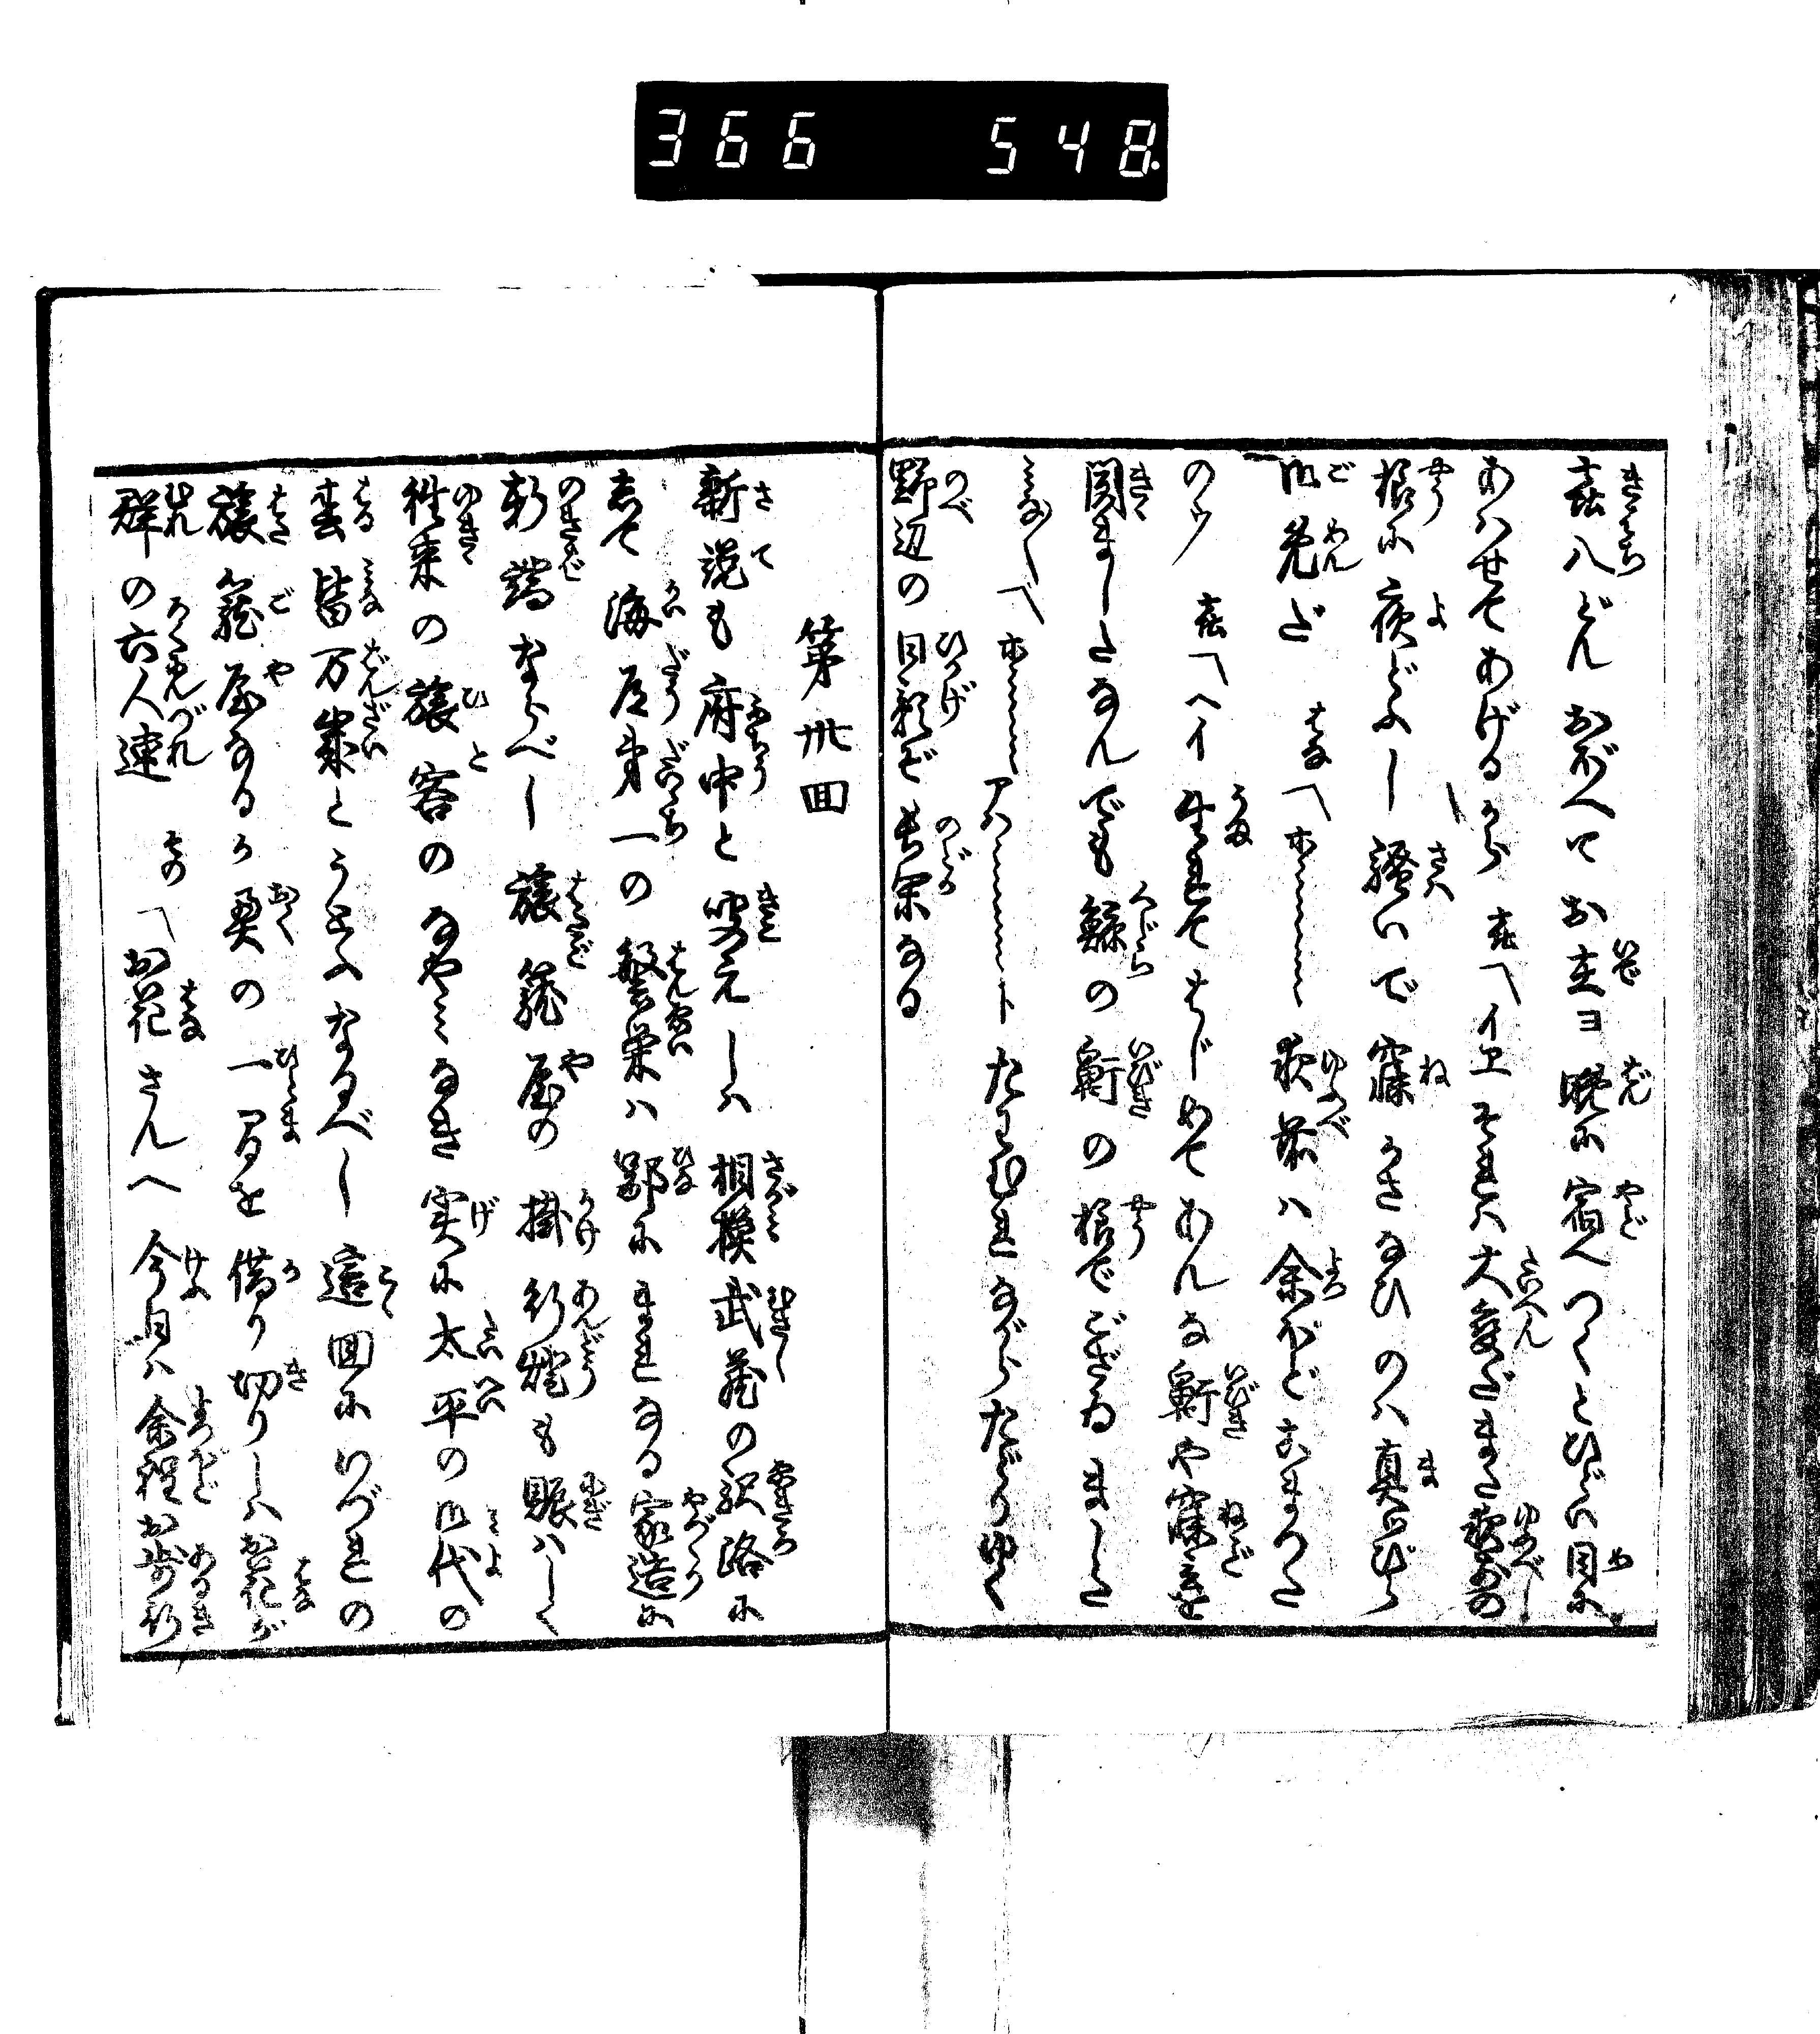 366 548.
喜八どんおぼへてお出ヨ晩に宿へつくとひどい目に
あハせてあげるから 喜「イヱそれハ大変だまた夜前の
様に夜どふし騒いで寐かさないのハ真平
御免だ はな「ホヽヽヽヽ夜前ハ余ほどこまつた
のウ 喜「ヘイ生れてはじめてあんな鼾や寐言を
聞ましたなんでも鯨の鼾の様でござゐました
みな〳〵「ホヽヽヽヽアハヽヽヽヽトたはむれながらたどりゆく
野辺の日影ぞ長閑なる
第卅回
新説も府中と聞えしハ相摸武蔵の駅路に
して海道第一の繁栄ハ鄙にまれなる家造に
軒端ならべし旅籠屋の掛行燈も賑ハしく
往来の旅客のなやみなき実に太平の御代の
春皆万歳とうたふなるべし這回にいづれの
旅籠屋なるか奥の一間を借り切りしハお花が
群の六人連 その「お花さんへ今日ハ余程お歩行